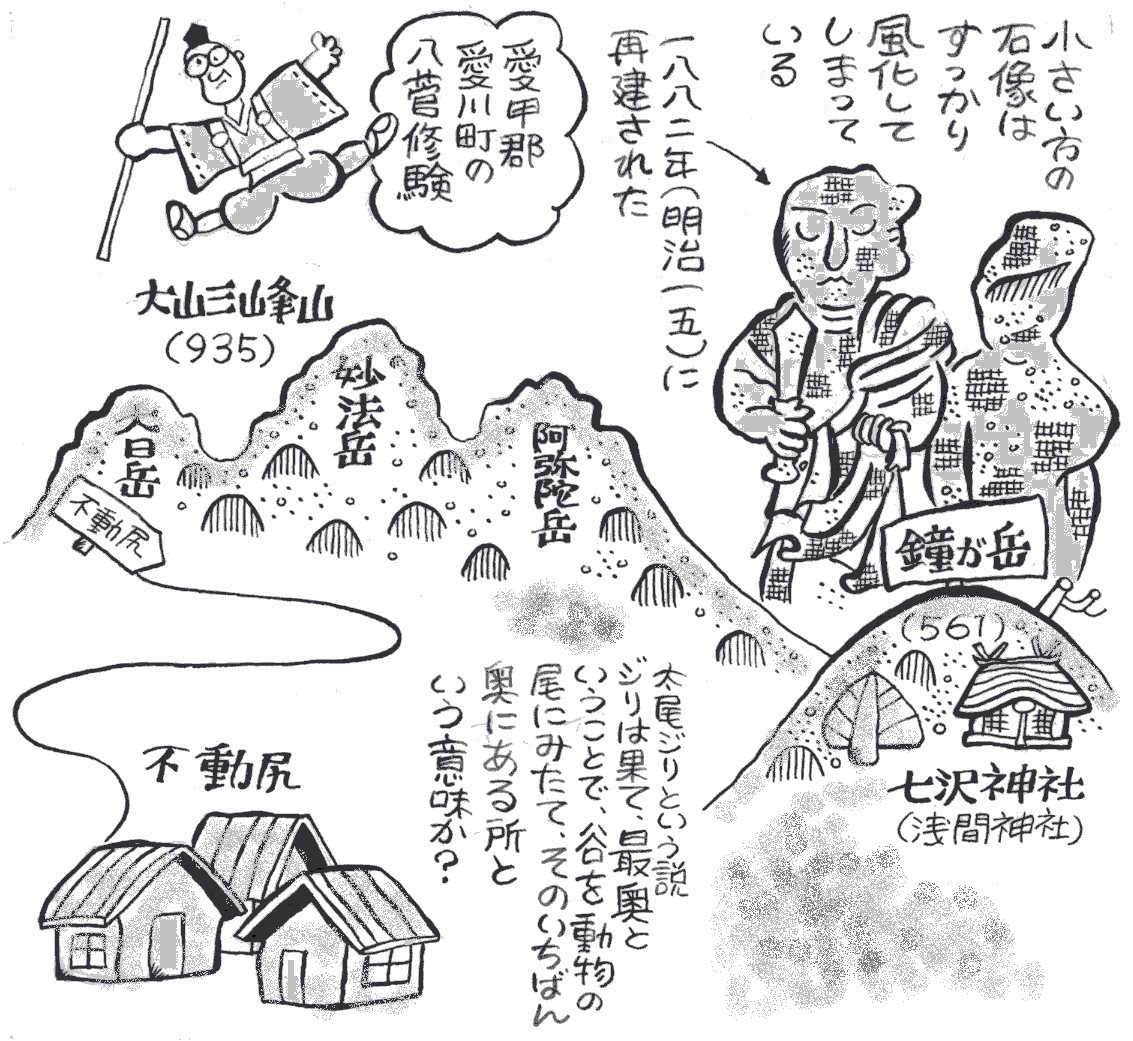 小さい方の
石像は
すっかり
風化して
しまって
いる
一八八二年(明治一五)に
再建された
愛甲郡
愛川町の
八菅修験
大山三峰山
(935)
大日岳
妙法岳
阿弥陀岳
不動尻
鐘が岳
(561)
七沢神社
(浅間神社)
太尾ジリという説
ジリは果て、最奥と
いうことで、谷を動物の
尾にみたて、そのいちばん
奥にある所と
いう意味か?
不動尻